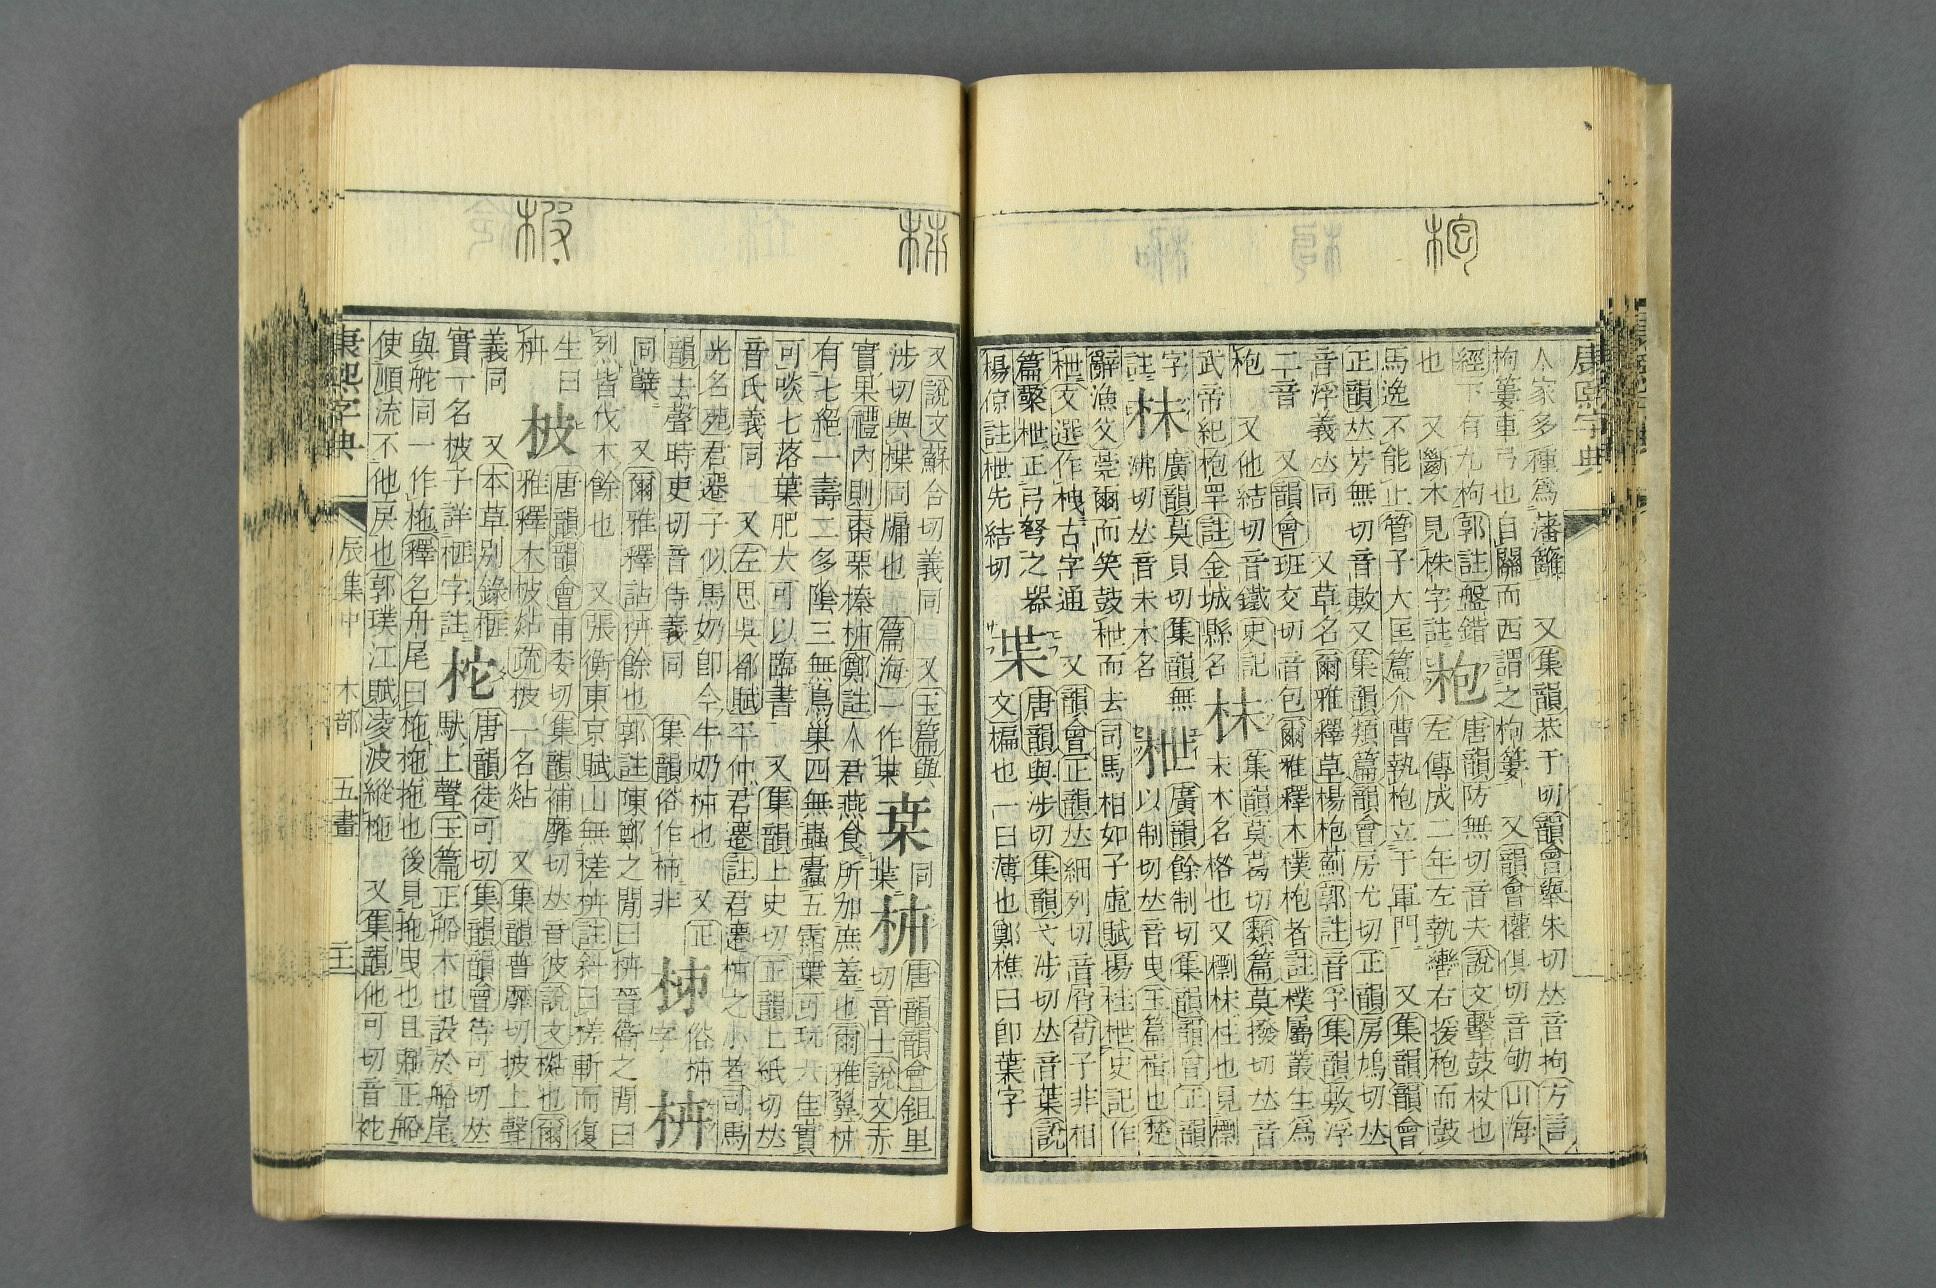 康熙字典
枹
人家多種爲藩籬 又集韻恭于切韻會舉朱切𠀤音拘方言
枸簍車弓也自關而西謂之枸簍 又韻會權俱切音劬山海
經下有九枸郭註盤錯
也 又斷木見株字註
枹
唐韻防無切音夫說文擊鼓杖也
左傳成二年左執轡右援枹而鼓
馬逸不能止管子大匡篇介冑執枹立于軍門 又集韻韻會
正韻𠀤芳無切音敷又集韻類篇韻會房尤切正韻房鳩切𠀤
音浮義𠀤同 又草名爾雅釋草楊枹薊郭註音孚集韻敷浮
二音 又韻會班交切音包爾雅釋木樸枹者註樸屬叢生爲
枹 又他結切音鐵史記
武帝紀枹罕註金城縣名
枺
集韻莫葛切類篇莫撥切𠀤音
末木名格也又標枺柱也見標
字
註
廣韻莫貝切集韻無
沸切𠀤音未木名
枻
廣韻餘制切集韻韻會正韻
以制切𠀤音曳玉篇楫也楚
辭漁父莞爾而笑鼓枻而去司馬相如子虛賦揚桂枻史記作
枻文選作栧古字通 又韻會正韻𠀤細列切音屑荀子非相
篇檠枻正弓弩之器
楊倞註枻先結切
枼
唐韻與涉切集韻弋涉切𠀤音葉說
文楄也一曰薄也鄭樵曰卽葉字
又說文蘇合切義同 又玉篇與
涉切與楪同牖也篇海一作枽
枽
同
葉
柹
唐韻韻會鉏里
切音士說文赤
實果禮內則棗栗榛柹鄭註人君燕食所加庶羞也爾雅翼柹
有七絕一壽二多隂三無鳥巢四無蟲蠹五霜葉可玩六佳實
可啖七落葉肥大可以臨書 又集韻上史切正韻上紙切𠀤
音氏義同 又左思吳都賦平仲君遷註君遷柹之小者司馬
光名苑君遷子似馬奶卽今牛奶柹也 又正
韻去聲時吏切音侍義同 集韻俗作柿非
俗柹
字
同櫱 又爾雅釋詁栟餘也郭註陳鄭之閒曰栟晉衞之閒曰
列皆伐木餘也 又張衡東京賦山無槎栟註斜曰槎斬而復
生曰
栟
柀
唐韻韻會甫委切集韻補靡切𠀤音彼說文㯕也爾
雅釋木柀煔疏柀一名煔 又集韻普靡切披上聲
義同 又本草別錄榧
實一名柀子詳榧字註
柁
唐韻徒可切集韻韻會待可切𠀤
馱上聲玉篇正船木也設於船尾
與舵同一作柂釋名舟尾曰柂柂拖也後見拖曳也且弼正船
使順流不他戾也郭璞江賦凌波縱柂 又集韻他可切音袉
康熙字典
辰集中 木部 五畫